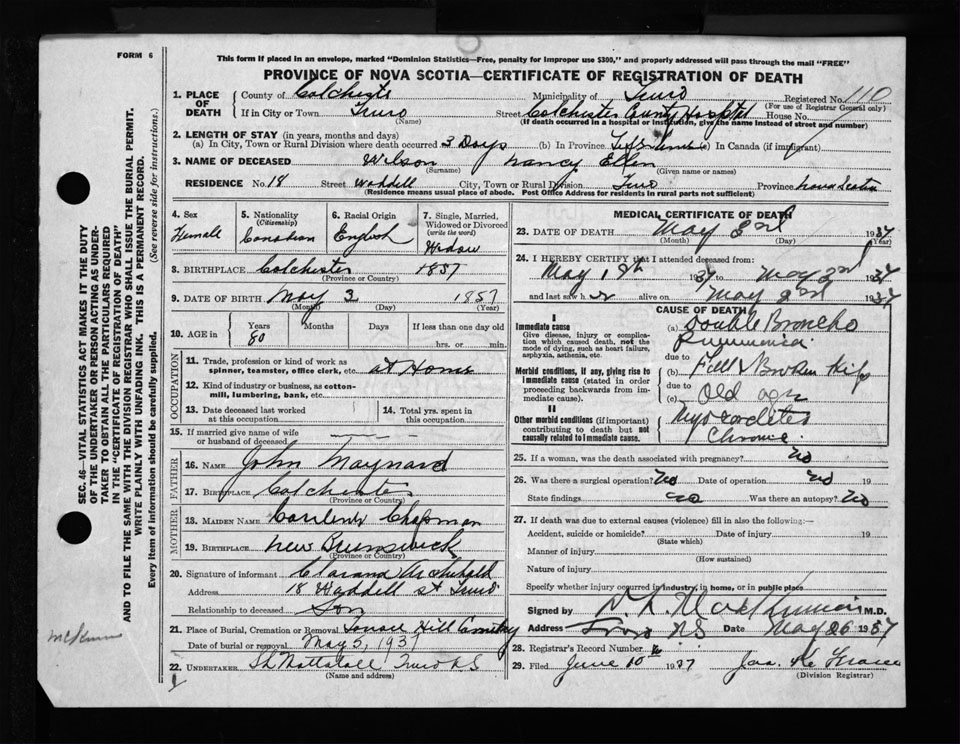 FORM 6
This form if placed in an envelope, marked "Dominion Statistics—Free, penalty for improper use $300," and properly addressed will pass through the mail "FREE"
PROVINCE OF NOVA SCOTIA—CERTIFICATE OF REGISTRATION OF DEATH
1. PLACE OF DEATH
County of Colchester Municipality of Truro Registered No. 110
(For use of Registrar General only)
If in City or Town Truro Street Colchester County Hospital House No.
(Name) (If death occurred in a hospital or institution, give the name instead of street and number)
2. LENGTH OF STAY (in years, months and days)
(a) In City, Town or Rural Division where death occurred 3 Days (b) In Province Life (c) In Canada (if immigrant)
3. NAME OF DECEASED Wilson Nancy Ellen
(Surname) (Given name or names)
RESIDENCE No. 18 Street Waddell City, Town or Rural Division Truro Province Nova Scotia
(Residence means usual place of abode. Post Office Address for residents in rural parts not sufficient)
4. Sex
Female
5. Nationality (Citizenship)
Canadian
6. Racial Origin
English
7. Single, Married, Widowed or Divorced (write the word)
Widow
8. BIRTHPLACE Colchester 1857
(Province or Country)
9. DATE OF BIRTH May 3 1857
(Month) (Day) (Year)
10. AGE in Years Months Days If less than one day old
80 hrs. or min.
OCCUPATION
11. Trade, profession or kind of work as spinner, teamster, office clerk, etc. at Home
12. Kind of industry or business, as cotton-mill, lumbering, bank, etc.
13. Date deceased last worked at this occupation
14. Total yrs. spent in this occupation
15. If married give name of wife or husband of deceased
FATHER
16. NAME John Maynard
17. BIRTHPLACE Colchester
(Province or Country)
MOTHER
18. MAIDEN NAME Chapman
19. BIRTHPLACE New Brunswick
(Province or Country)
20. Signature of informant Archibald
Address 18 Waddell St Truro
Relationship to deceased Son
21. Place of Burial, Cremation or Removal Hill Cemetery
Date of burial or removal May 5, 1937
22. UNDERTAKER Truro NS
(Name and address)
MEDICAL CERTIFICATE OF DEATH
23. DATE OF DEATH May 3rd 1937
(Month) (Day) (Year)
24. I HEREBY CERTIFY that I attended deceased from:
May 1 1937 to May 3rd 1937
and last saw her alive on May 3rd 1937
CAUSE OF DEATH
I
Immediate cause
Give disease, injury or complication which caused death, not the mode of dying, such as heart failure, asphyxia, asthenia, etc.
(a) Double Broncho Pneumonia
due to
Morbid conditions, if any, giving rise to immediate cause (stated in order proceeding backwards from immediate cause).
(b) Fall & Broken Hip
due to
(c) Old age
II
Other morbid conditions (if important) contributing to death but not causally related to immediate cause.
Myocarditis
Chronic
25. If a woman, was the death associated with pregnancy? No
26. Was there a surgical operation? No Date of operation no 19
State findings no Was there an autopsy? No
27. If death was due to external causes (violence) fill in also the following:—
Accident, suicide or homicide? Date of injury 19
(State which)
Manner of injury
(How sustained)
Nature of injury
Specify whether injury occurred in industry, in home, or in public place
Signed by M.D.
Address Truro NS Date May 26 1937
28. Registrar's Record Number
29. Filed June 10 1937 Jas.
(Division Registrar)
SEC. 46—VITAL STATISTICS ACT MAKES IT THE DUTY
OF THE UNDERTAKER OR PERSON ACTING AS UNDER-
TAKER TO OBTAIN ALL THE PARTICULARS REQUIRED
IN THE "CERTIFICATE OF REGISTRATION OF DEATH"
AND TO FILE THE SAME WITH THE DIVISION REGISTRAR WHO SHALL ISSUE THE BURIAL PERMIT.
WRITE PLAINLY WITH UNFADING INK. THIS IS A PERMANENT RECORD.
Every item of information should be carefully supplied. (See reverse side for instructions.)